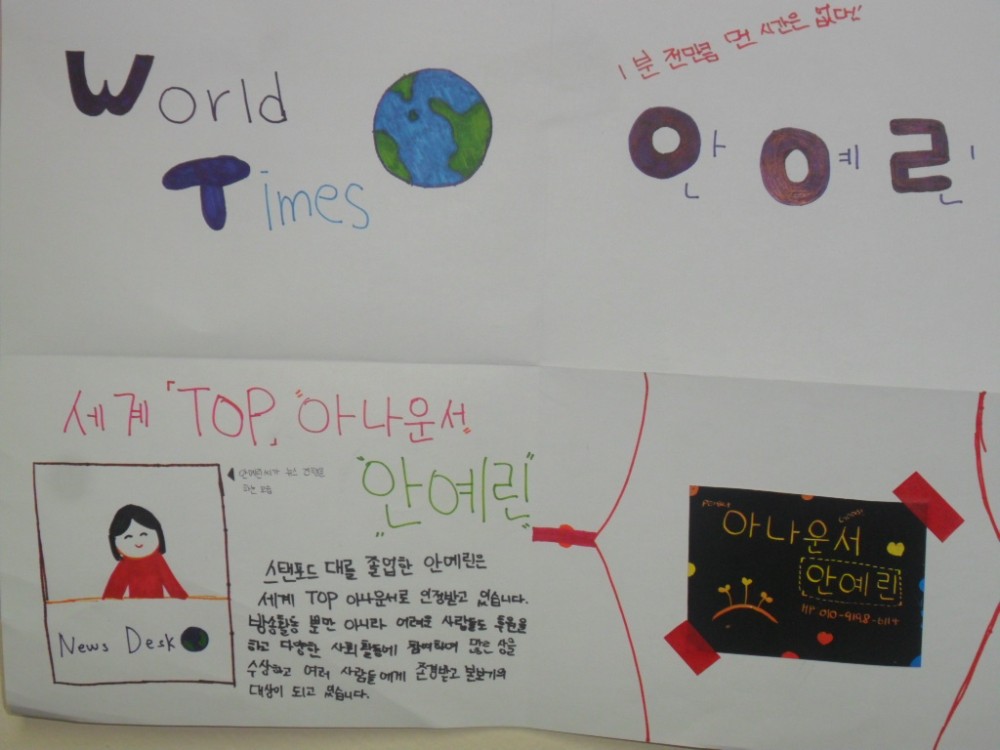 World
Times
1분 전만큼 먼 시간은 없다"
안 예 린
세계 「TOP」 "아나운서"
◀ 안예린씨가 뉴스 진행을
하는 모습
"안예린"
News Desk
스탠포드 대를 졸업한 안예린은
세계 TOP 아나운서로 인정받고 있습니다.
방송활동 뿐만 아니라 어려운 사람들도 후원을
하고 다양한 사회활동에 참여하며 많은 상을
수상하고 여러 사람들에게 존경받고 본보기의
대상이 되고 있습니다.
아나운서
안예린
HP 010-9198-6117